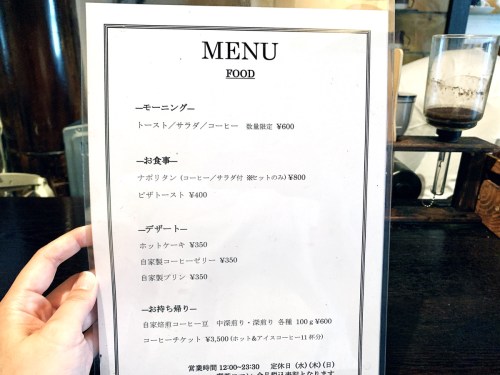 MENU
FOOD
―モーニング―
トースト／サラダ／コーヒー 数量限定 ¥600
―お食事―
ナポリタン (コーヒー／サラダ付 ※セットのみ) ¥800
ピザトースト ¥400
―デザート―
ホットケーキ ¥350
自家製コーヒーゼリー ¥350
自家製プリン ¥350
―お持ち帰り―
自家焙煎コーヒー豆 中深煎り・深煎り 各種 100ｇ¥600
コーヒーチケット ¥3,500 (ホット&アイスコーヒー11杯分)
営業時間 12:00~23:30 定休日 (水)(木)(日)